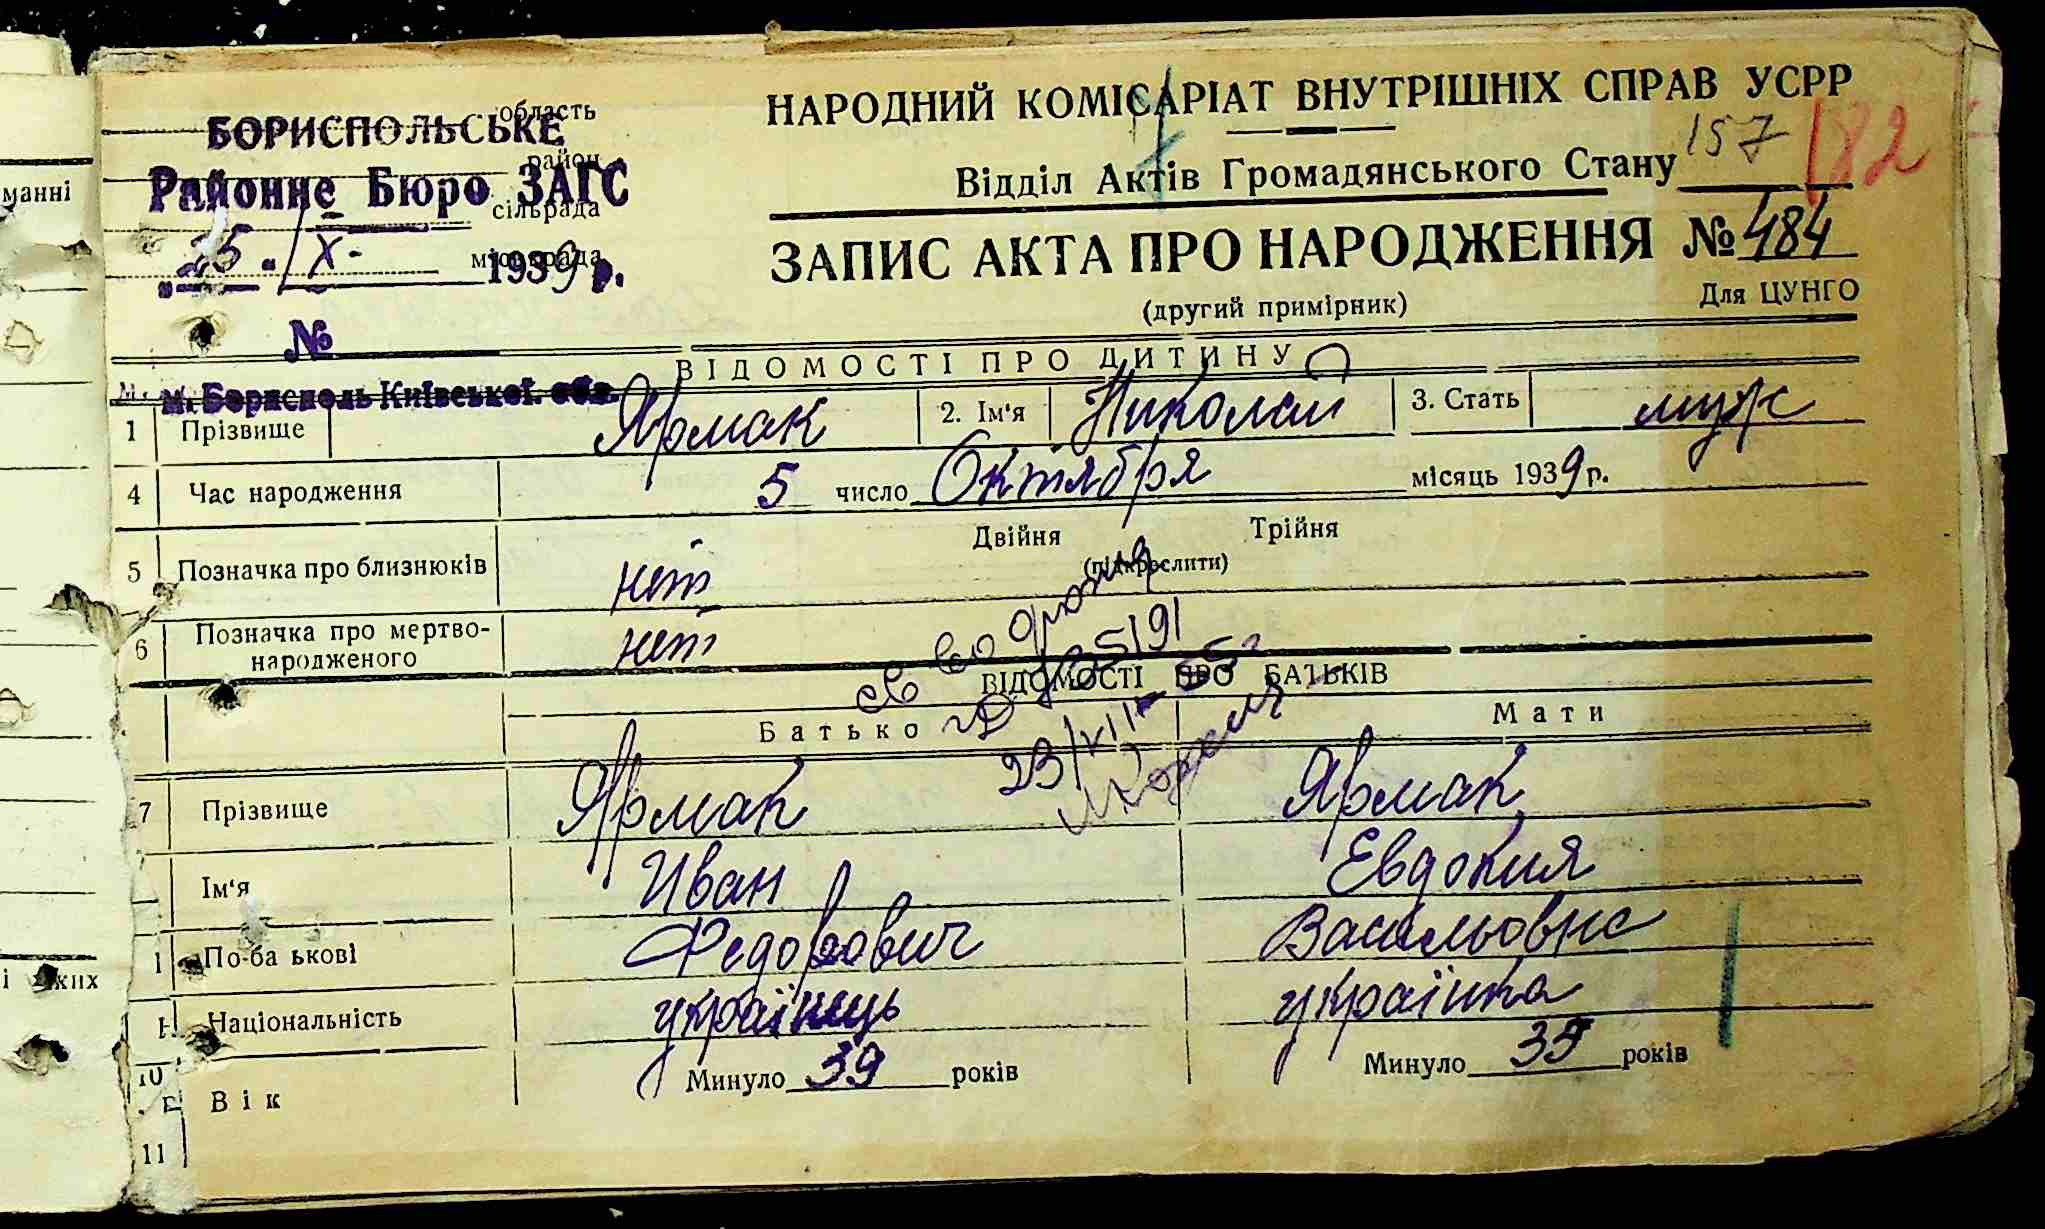 область
район
сільрада
міськрада
БОРИСПОЛЬСЬКЕ
Районне Бюро ЗАГС
"25" / X- 1939 р.
№
м. Бориспіль Київської обл.
НАРОДНИЙ КОМІСАРІАТ ВНУТРІШНІХ СПРАВ УСРР
Відділ Актів Громадянського Стану
157
182
ЗАПИС АКТА ПРО НАРОДЖЕННЯ № 484
(другий примірник)
Для ЦУНГО
ВІДОМОСТІ ПРО ДИТИНУ
1 Прізвище Ярмак 2. Ім'я Николай 3. Стать муж
4 Час народження 5 число Октября місяць 1939 р.
5 Позначка про близнюків нет Двійня Трійня
(підкреслити)
6 Позначка про мертво-
народженого нет
ВІДОМОСТІ ПРО БАТЬКІВ
Батько Мати
23/VII-55г
7 Прізвище Ярмак Ярмак
Ім'я Иван Евдокия
По-ба ькові Федорович Васильовна
Національність українець українка
10 Вік Минуло 39 років Минуло 35 років
11
манні
і яких